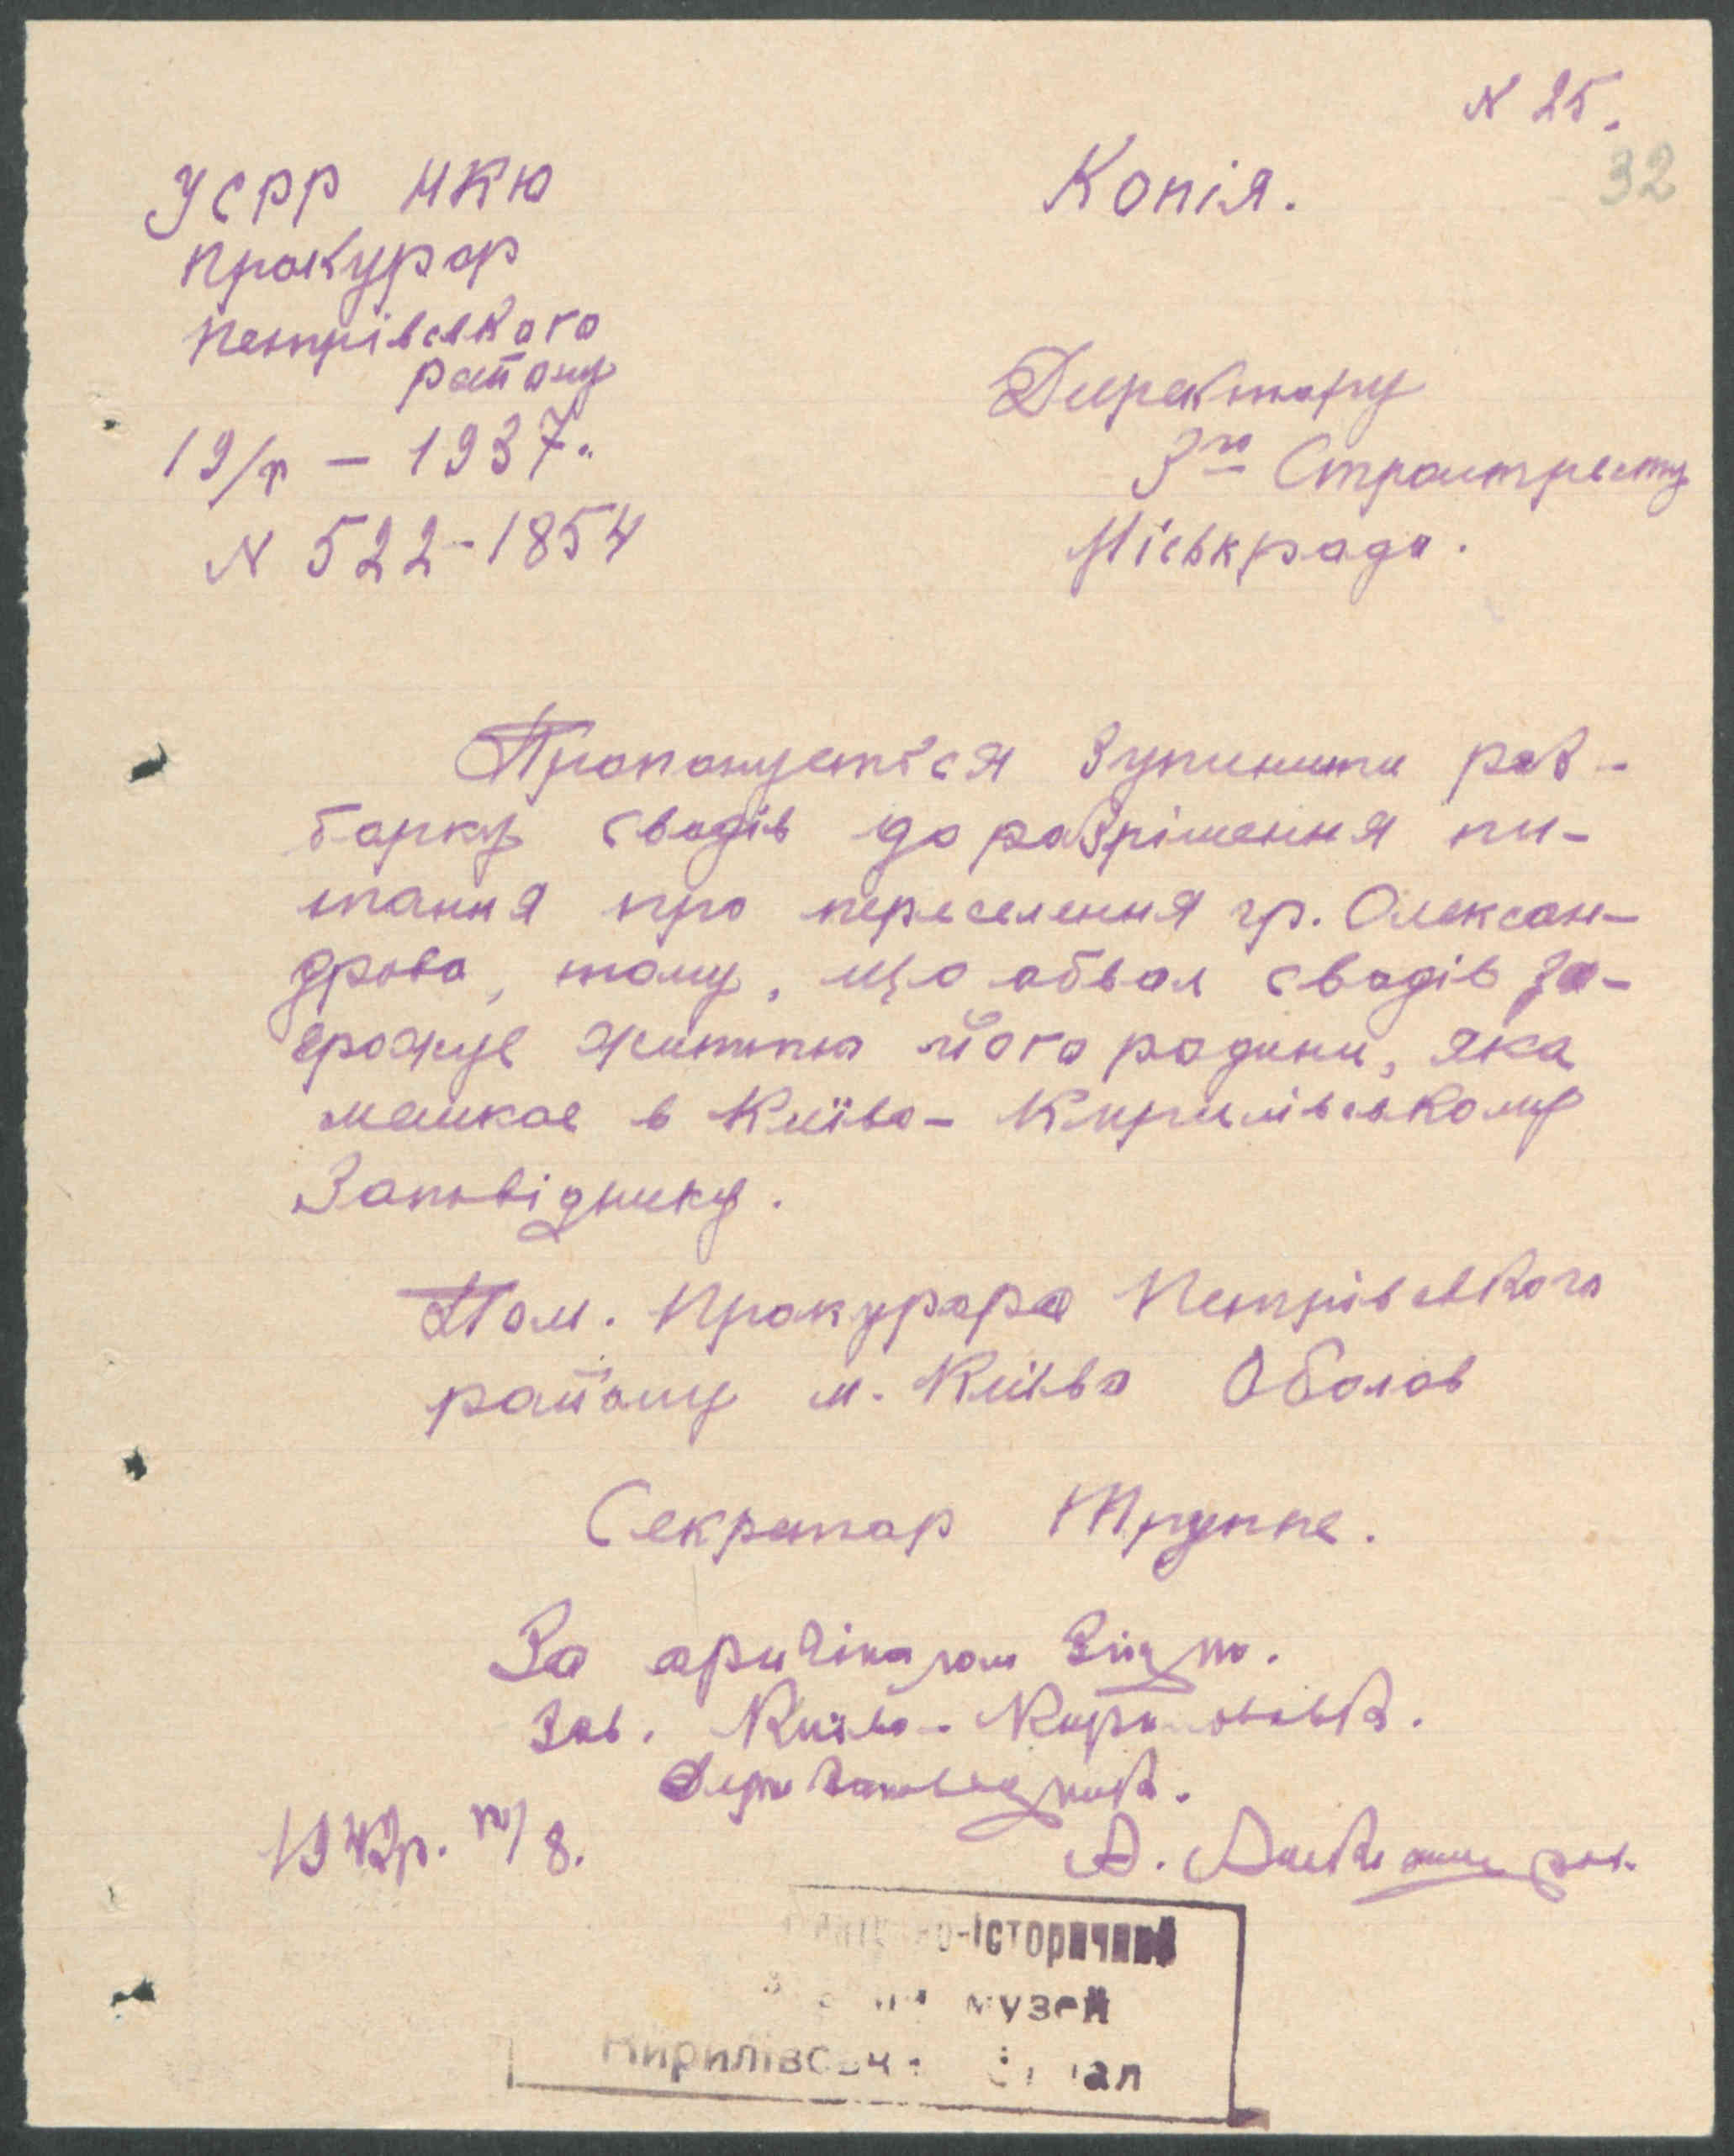 N 25.
32
УСРР НКЮ
Прокурор
Петрівського
району
19/ – 1937.
N 522-1854
Копія.
Директору
3го Стройтресту
Міськради.
Пропонується зупинити роз-
борку сводів до розрішення пи-
тання про переселення гр. Олексан-
дрова, тому, що обвал сводів за-
грожує життю його родини, яка
мешкає в Київо-Кирилівському
Заповіднику.
Пом. Прокурора Петрівського
району м. Київа Оболов
Секретар Труппе.
За оригіналом згідно.
Зав. Київо-Кирилівськ.
Держзаповідник.
1942р. 10/8.
А. Александров.
-Історичний
музей
Кирилівськ